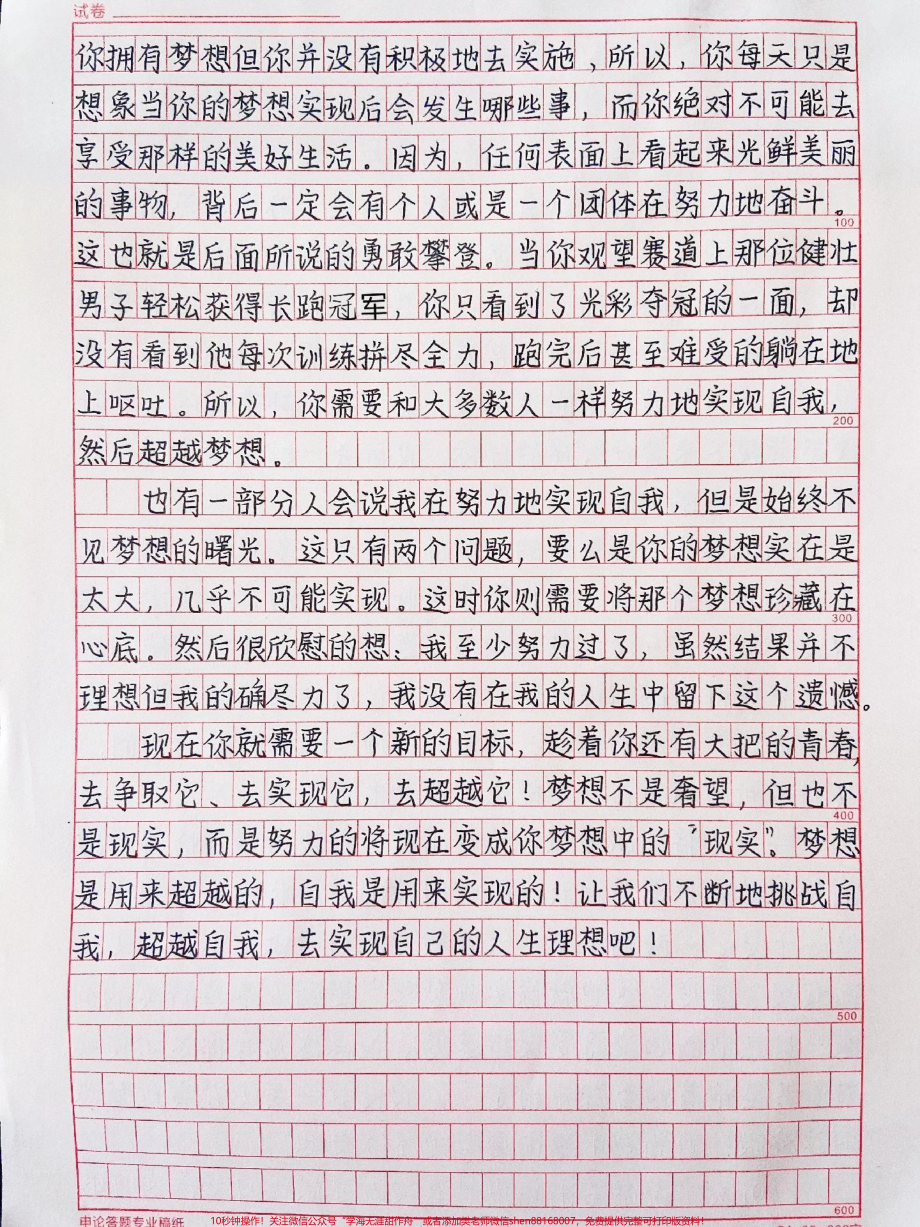 试卷
你拥有梦想但你并没有积极地去实施，所以，你每天只是
想象当你的梦想实现后会发生哪些事，而你绝对不可能去
享受那样的美好生活。因为，任何表面上看起来光鲜美丽
的事物，背后一定会有个人或是一个团体在努力地奋斗。
100
这也就是后面所说的勇敢攀登。当你观望赛道上那位健壮
男子轻松获得长跑冠军，你只看到了光彩夺冠的一面，却
没有看到他每次训练拼尽全力，跑完后甚至难受的躺在地
上呕吐。所以，你需要和大多数人一样努力地实现自我，
200
然后超越梦想。
也有一部分人会说我在努力地实现自我，但是始终不
见梦想的曙光。这只有两个问题，要么是你的梦想实在是
太大，几乎不可能实现。这时你则需要将那个梦想珍藏在
300
心底。然后很欣慰的想：我至少努力过了，虽然结果并不
理想但我的确尽力了，我没有在我的人生中留下这个遗憾。
现在你就需要一个新的目标，趁着你还有大把的青春，
去争取它、去实现它，去超越它！梦想不是奢望，但也不
400
是现实，而是努力的将现在变成你梦想中的“现实”。梦想
是用来超越的，自我是用来实现的！让我们不断地挑战自
我，超越自我，去实现自己的人生理想吧！
500
600
申论答题专业稿纸
10秒钟操作！关注微信公众号“学海无涯甜作舟”或者添加美老师微信shen88168007，免费提供完整可打印版资料！